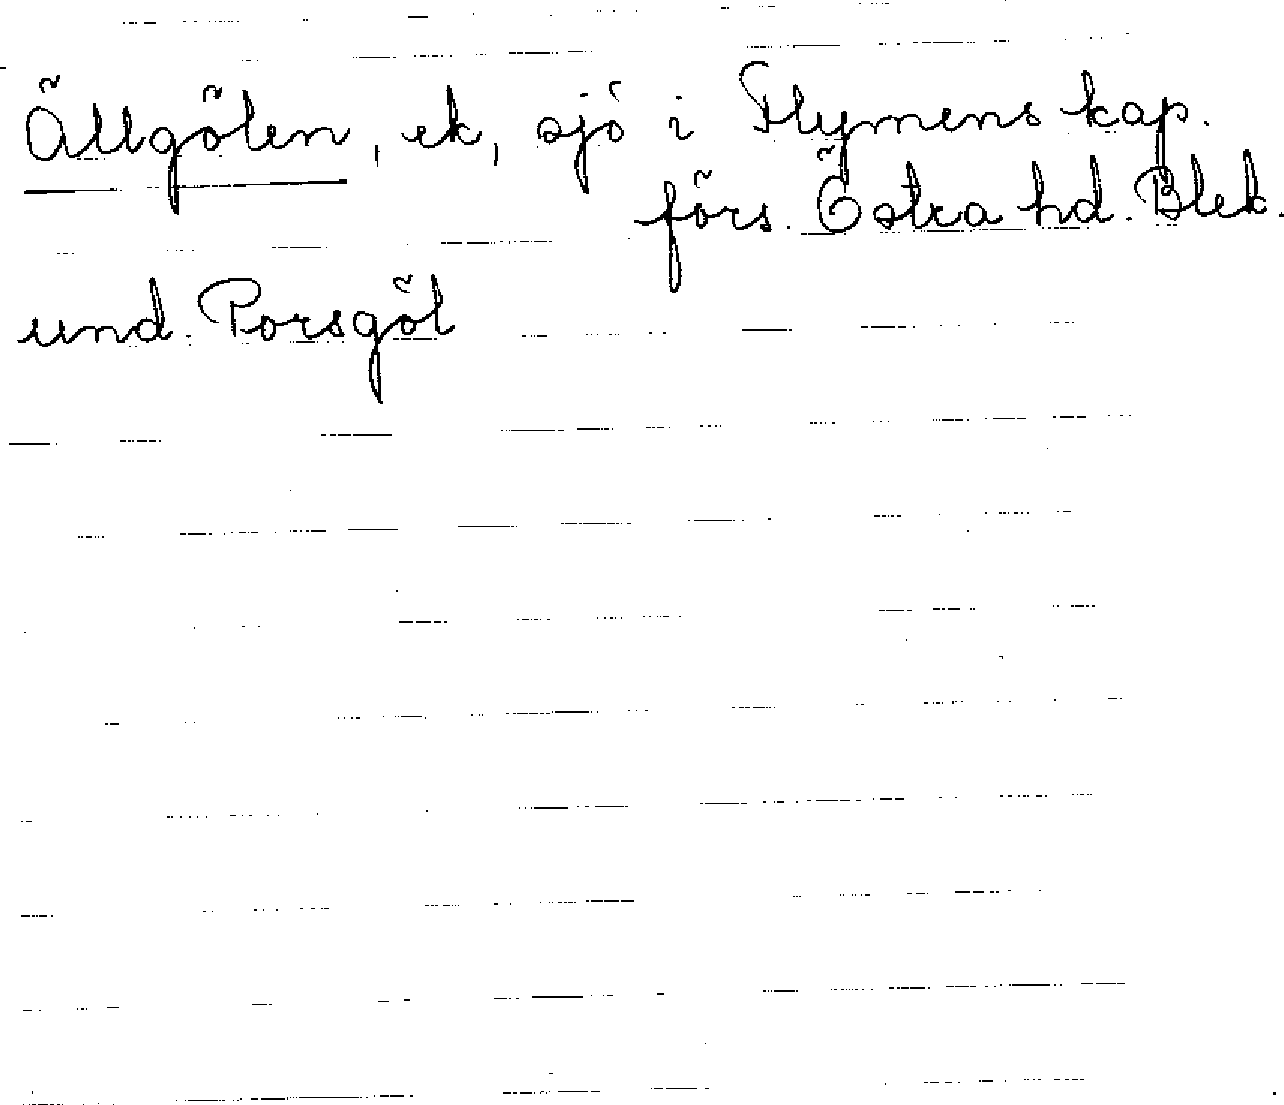 Ällgölen, ek, sjö i Flymens kap.
förs. Östra hd. Blek.
und. Porsgöl